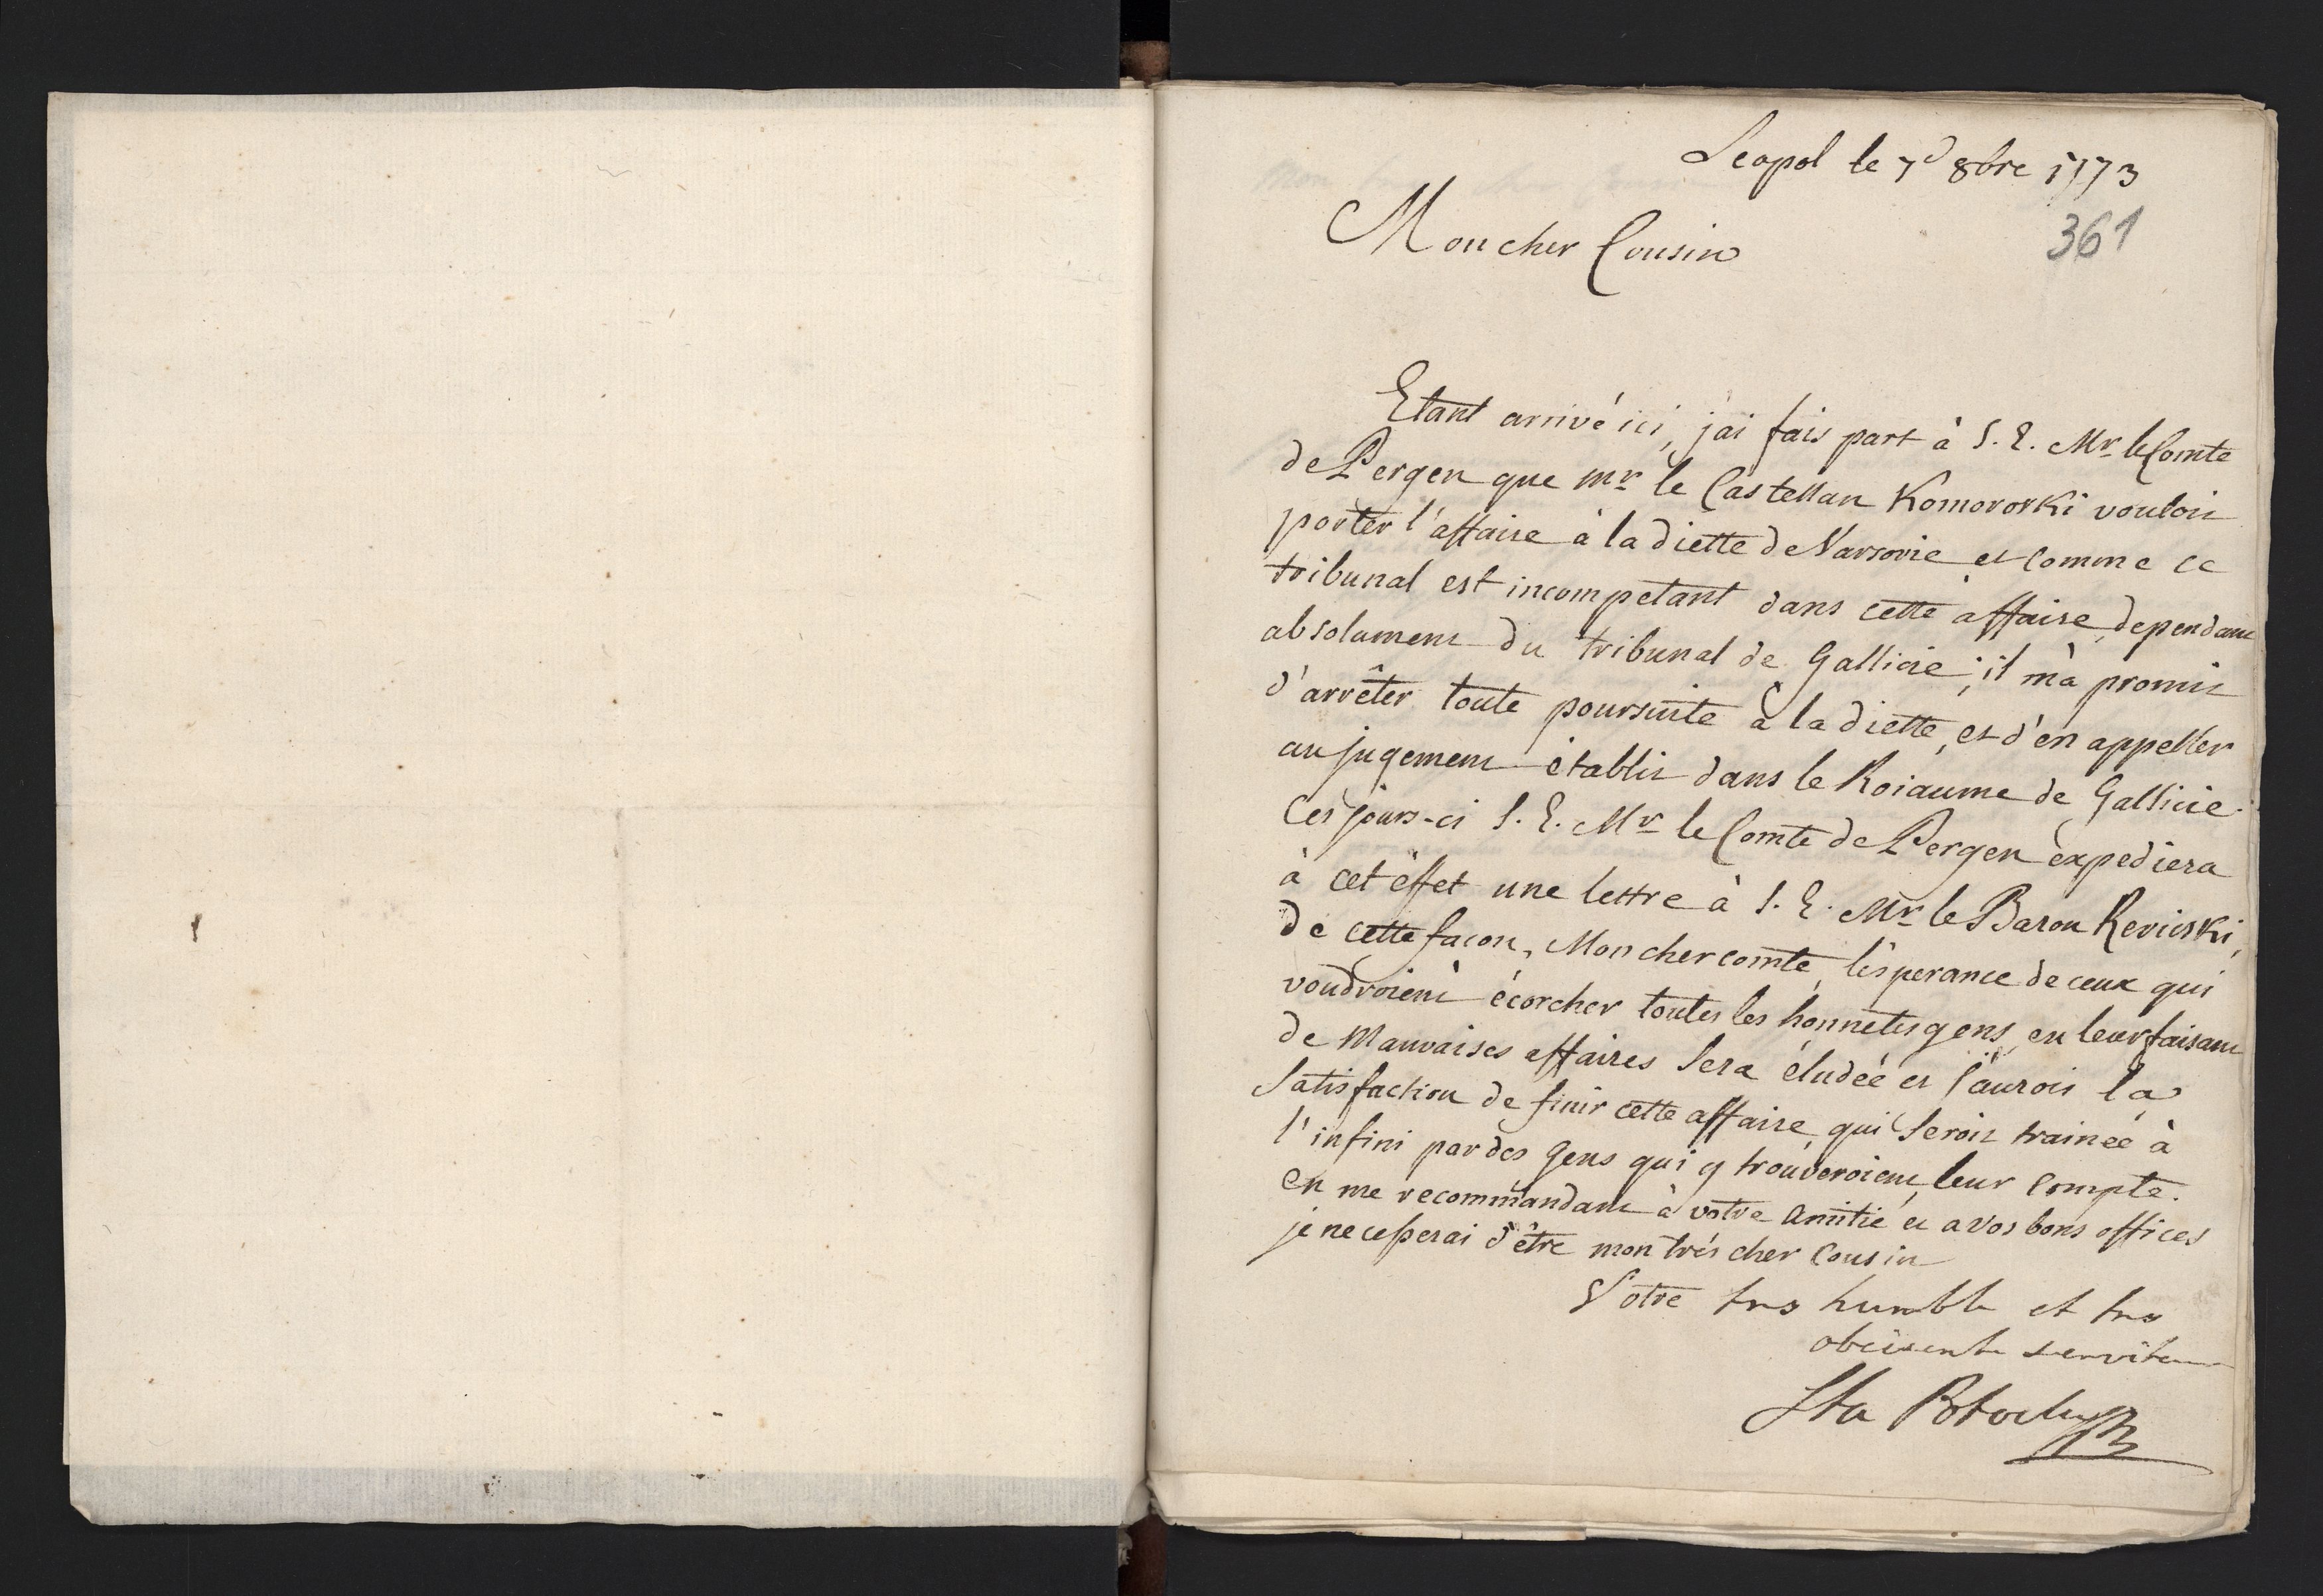 Leopol le 7d 8bre 1773
361
Mon cher Cousin
Etant arrivé ici, j'ai fais part à S. E. Mr le Comte
de Pergen que mr le Castellan Komorovski vouloit
porter l'affaire à la diette de Varsovie et comme ce
tribunal est incompetant dans cette affaire, dependant
absolument du tribunal de Gallicie; il m'à promis
d'arrêter toute poursuite à la diette, et d'en appeller
au jugement établis dans le Roiaume de Gallicie.
Ces jours-ci S. E. Mr le Comte de Pergen èxpediera
à cet éffet une lettre à S. E. Mr le Baron Revicski,
de cette facon, Mon cher comte, l'ésperance de ceux qui
voudroient écorcher toutes les honnetes gens, en leur faisant
de Mauvaises affaires Sera éludéé et j'aurois la
Satisfaction de finir cette affaire, qui Seroit trainéé à
l'infini par des gens qui y trouveroient, leur Compte.
en me recommandant à votre Amitié et a vos bons offices
je ne cesserai d'être mon trés cher Cousin
Votre tres humble et tres
obeissent serviteur
Sta Potocki